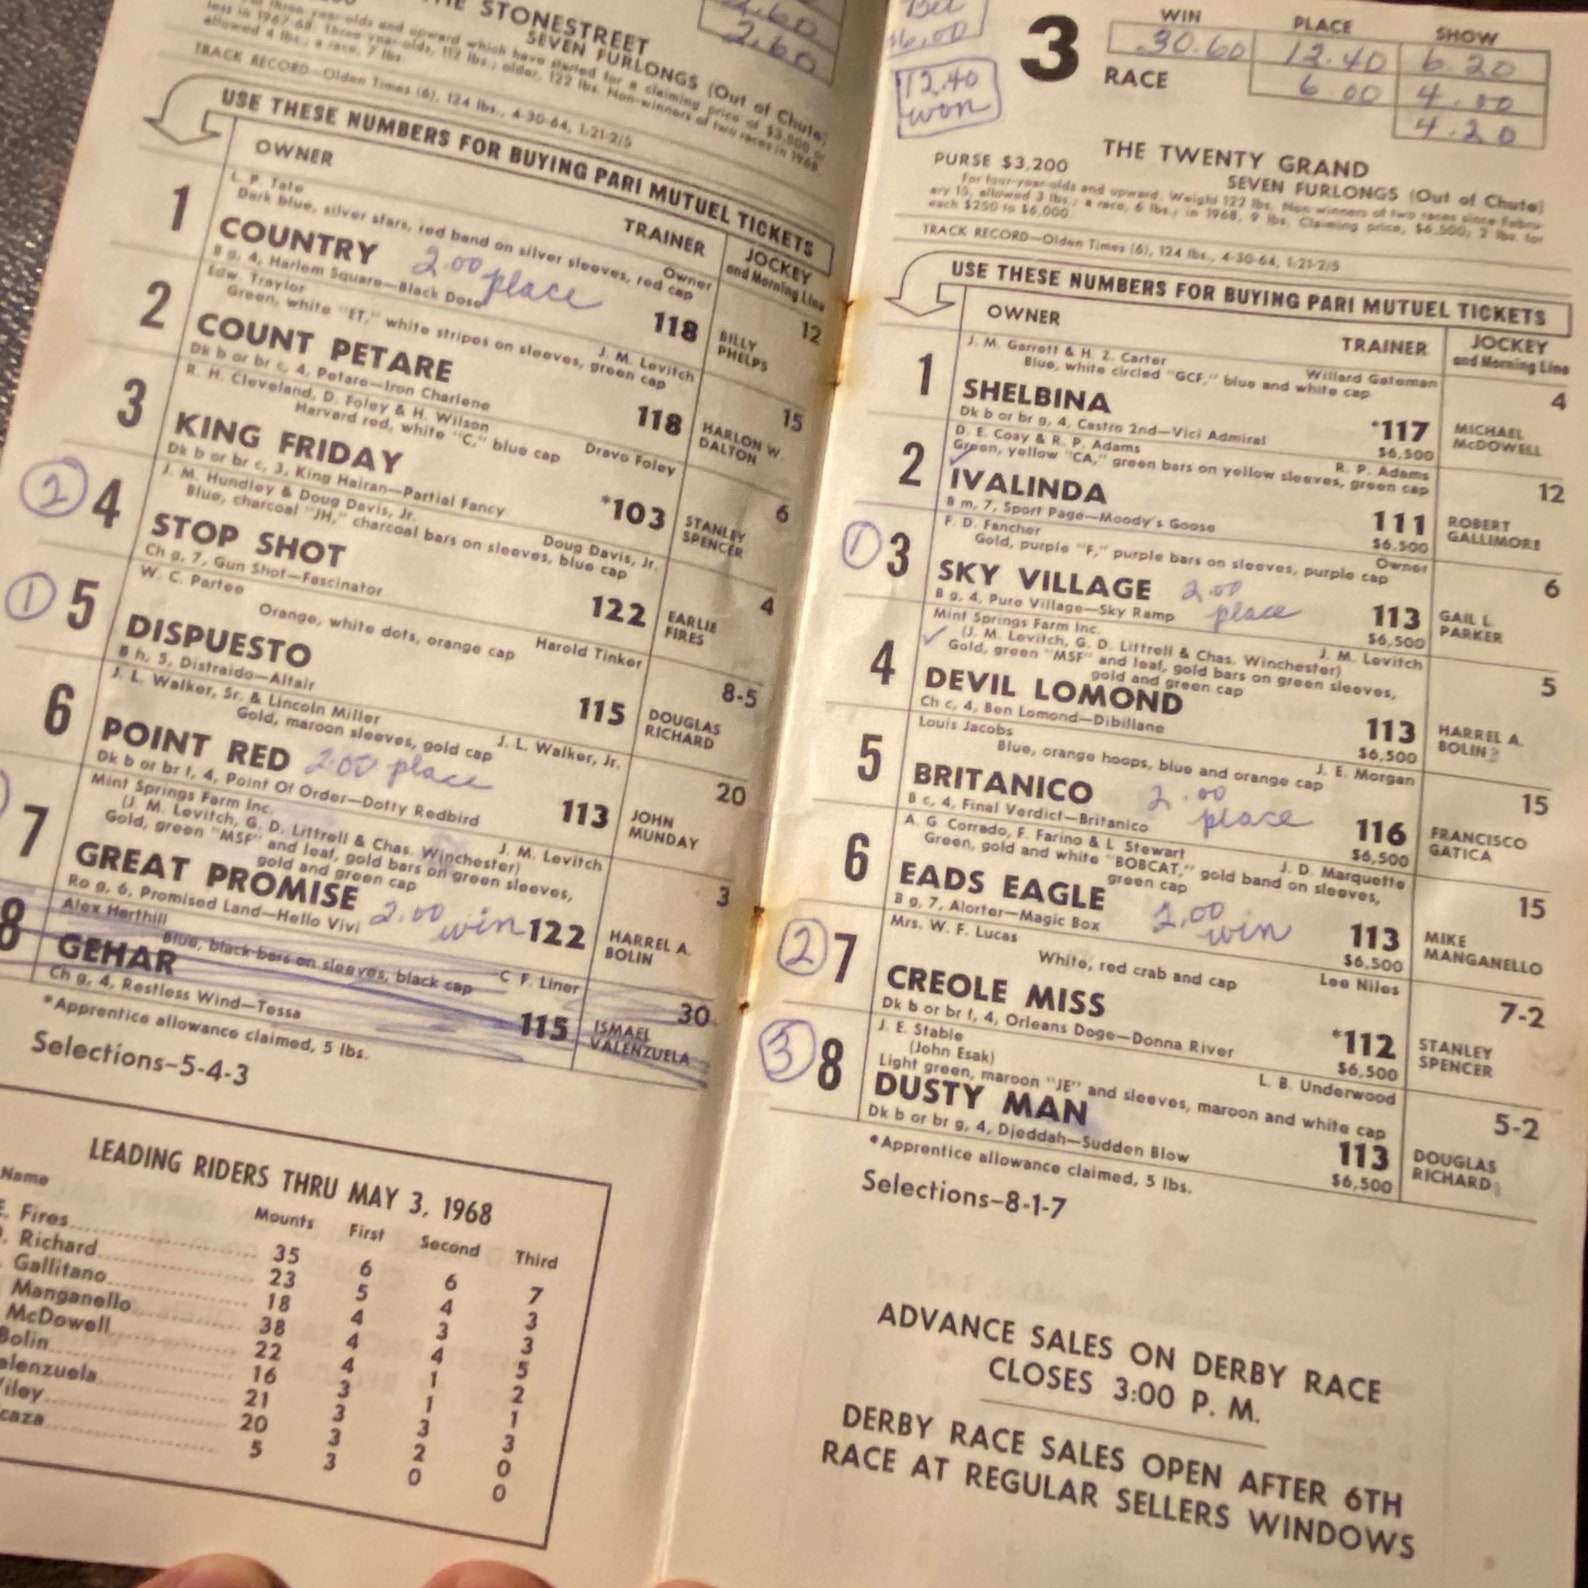 THE STONESTREET
2.60
SEVEN FURLONGS (Out of Chute)
three-year-olds and upward which have started for a claiming price of $3,500 or
less in 1967-68. Three-year-olds, 112 lbs.; older, 122 lbs. Non-winners of two races in 1968
allowed 4 lbs.; a race, 7 lbs.
TRACK RECORD—Olden Times (6), 124 lbs., 4-30-64, 1:21-2/5
USE THESE NUMBERS FOR BUYING PARI MUTUEL TICKETS
OWNER TRAINER JOCKEY and Morning Line
L. P. Tate Owner
Dark blue, silver stars, red band on silver sleeves, red cap 12
1 COUNTRY 2.00 place 118 BILLY PHELPS
B g, 4, Harlem Square—Black Dose
Edw. Traylor J. M. Levitch
Green, white "ET," white stripes on sleeves, green cap 15
2 COUNT PETARE 118 HARLON W. DALTON
Dk b or br c, 4, Petare—Iron Charlene
R. H. Cleveland, D. Foley & H. Wilson Dravo Foley
Harvard red, white "C," blue cap 6
3 KING FRIDAY *103 STANLEY SPENCER
Dk b or br c, 3, King Hairan—Partial Fancy
J. M. Hundley & Doug Davis, Jr. Doug Davis, Jr.
Blue, charcoal "JH," charcoal bars on sleeves, blue cap 4
2 4 STOP SHOT 122 EARLIE FIRES
Ch g, 7, Gun Shot—Fascinator
W. C. Partee Harold Tinker
Orange, white dots, orange cap 8-5
1 5 DISPUESTO 115 DOUGLAS RICHARD
B h, 5, Distraido—Altair
J. L. Walker, Sr. & Lincoln Miller J. L. Walker, Jr.
Gold, maroon sleeves, gold cap 20
6 POINT RED 2.00 place 113 JOHN MUNDAY
Dk b or br f, 4, Point Of Order—Dotty Redbird
Mint Springs Farm Inc. J. M. Levitch
(J. M. Levitch, G. D. Littrell & Chas. Winchester)
Gold, green "MSF" and leaf, gold bars on green sleeves,
gold and green cap 3
7 GREAT PROMISE 2.00 win 122 HARREL A. BOLIN
Ro g, 6, Promised Land—Hello Vivi
Alex Harthill C. F. Liner
Blue, black bars on sleeves, black cap 30
8 GEHAR 115 ISMAEL VALENZUELA
Ch g, 4, Restless Wind—Tessa
*Apprentice allowance claimed, 5 lbs.
Selections-5-4-3
LEADING RIDERS THRU MAY 3, 1968
Name Mounts First Second Third
E. Fires 35 6 6 7
Richard 23 5 4 3
Gallitano 18 4 3 3
Manganello 38 4 4 5
McDowell 22 4 1 2
Bolin 16 3 1 1
21 3 3 3
20 3 2 0
5 3 0 0
Bet
6.00
12.40
won
3 RACE
WIN PLACE SHOW
30.60 12.40 6.20
6.00 4.00
4.20
THE TWENTY GRAND
PURSE $3,200 SEVEN FURLONGS (Out of Chute)
For four-year-olds and upward. Weight 122 lbs. Non-winners of two races since Febru-
ary 15, allowed 3 lbs.; a race, 6 lbs.; in 1968, 9 lbs. Claiming price, $6,500; 2 lbs. for
each $250 to $6,000.
TRACK RECORD—Olden Times (6), 124 lbs., 4-30-64, 1:21-2/5
USE THESE NUMBERS FOR BUYING PARI MUTUEL TICKETS
OWNER TRAINER JOCKEY and Morning Line
J. M. Garrett & H. Z. Carter Willard Gateman
Blue, white circled "GCF," blue and white cap 4
1 SHELBINA *117 MICHAEL McDOWELL
Dk b or br g, 4, Castro 2nd—Vici Admiral $6,500
D. E. Coay & R. P. Adams R. P. Adams
Green, yellow "CA," green bars on yellow sleeves, green cap 12
2 IVALINDA 111 ROBERT GALLIMORE
B m, 7, Sport Page—Moody's Goose $6.500
F. D. Fancher Owner
Gold, purple "F," purple bars on sleeves, purple cap 6
1 3 SKY VILLAGE 2.00 place 113 GAIL L. PARKER
B g, 4, Pure Village—Sky Ramp $6,500
Mint Springs Farm Inc. J. M. Levitch
(J. M. Levitch, G. D. Littrell & Chas. Winchester)
Gold, green "MSF" and leaf, gold bars on green sleeves,
gold and green cap 5
4 DEVIL LOMOND 113 HARREL A. BOLIN
Ch c, 4, Ben Lomond—Dibillane $6,500
Louis Jacobs J. E. Morgan
Blue, orange hoops, blue and orange cap 15
5 BRITANICO 2.00 place 116 FRANCISCO GATICA
B c, 4, Final Verdict—Britanico $6,500
A. G. Corrado, F. Farino & L. Stewart J. D. Marquette
Green, gold and white "BOBCAT," gold band on sleeves,
green cap 15
6 EADS EAGLE 2.00 win 113 MIKE MANGANELLO
B g, 7, Alorter—Magic Box $6,500
Mrs. W. F. Lucas Lee Niles
White, red crab and cap 7-2
2 7 CREOLE MISS *112 STANLEY SPENCER
Dk b or br f, 4, Orleans Doge—Donna River $6,500
J. E. Stable L. B. Underwood
(John Esak)
Light green, maroon "JE" and sleeves, maroon and white cap 5-2
3 8 DUSTY MAN 113 DOUGLAS RICHARD
Dk b or br g, 4, Djeddah—Sudden Blow $6,500
*Apprentice allowance claimed, 5 lbs.
Selections-8-1-7
ADVANCE SALES ON DERBY RACE
CLOSES 3:00 P. M.
DERBY RACE SALES OPEN AFTER 6TH
RACE AT REGULAR SELLERS WINDOWS